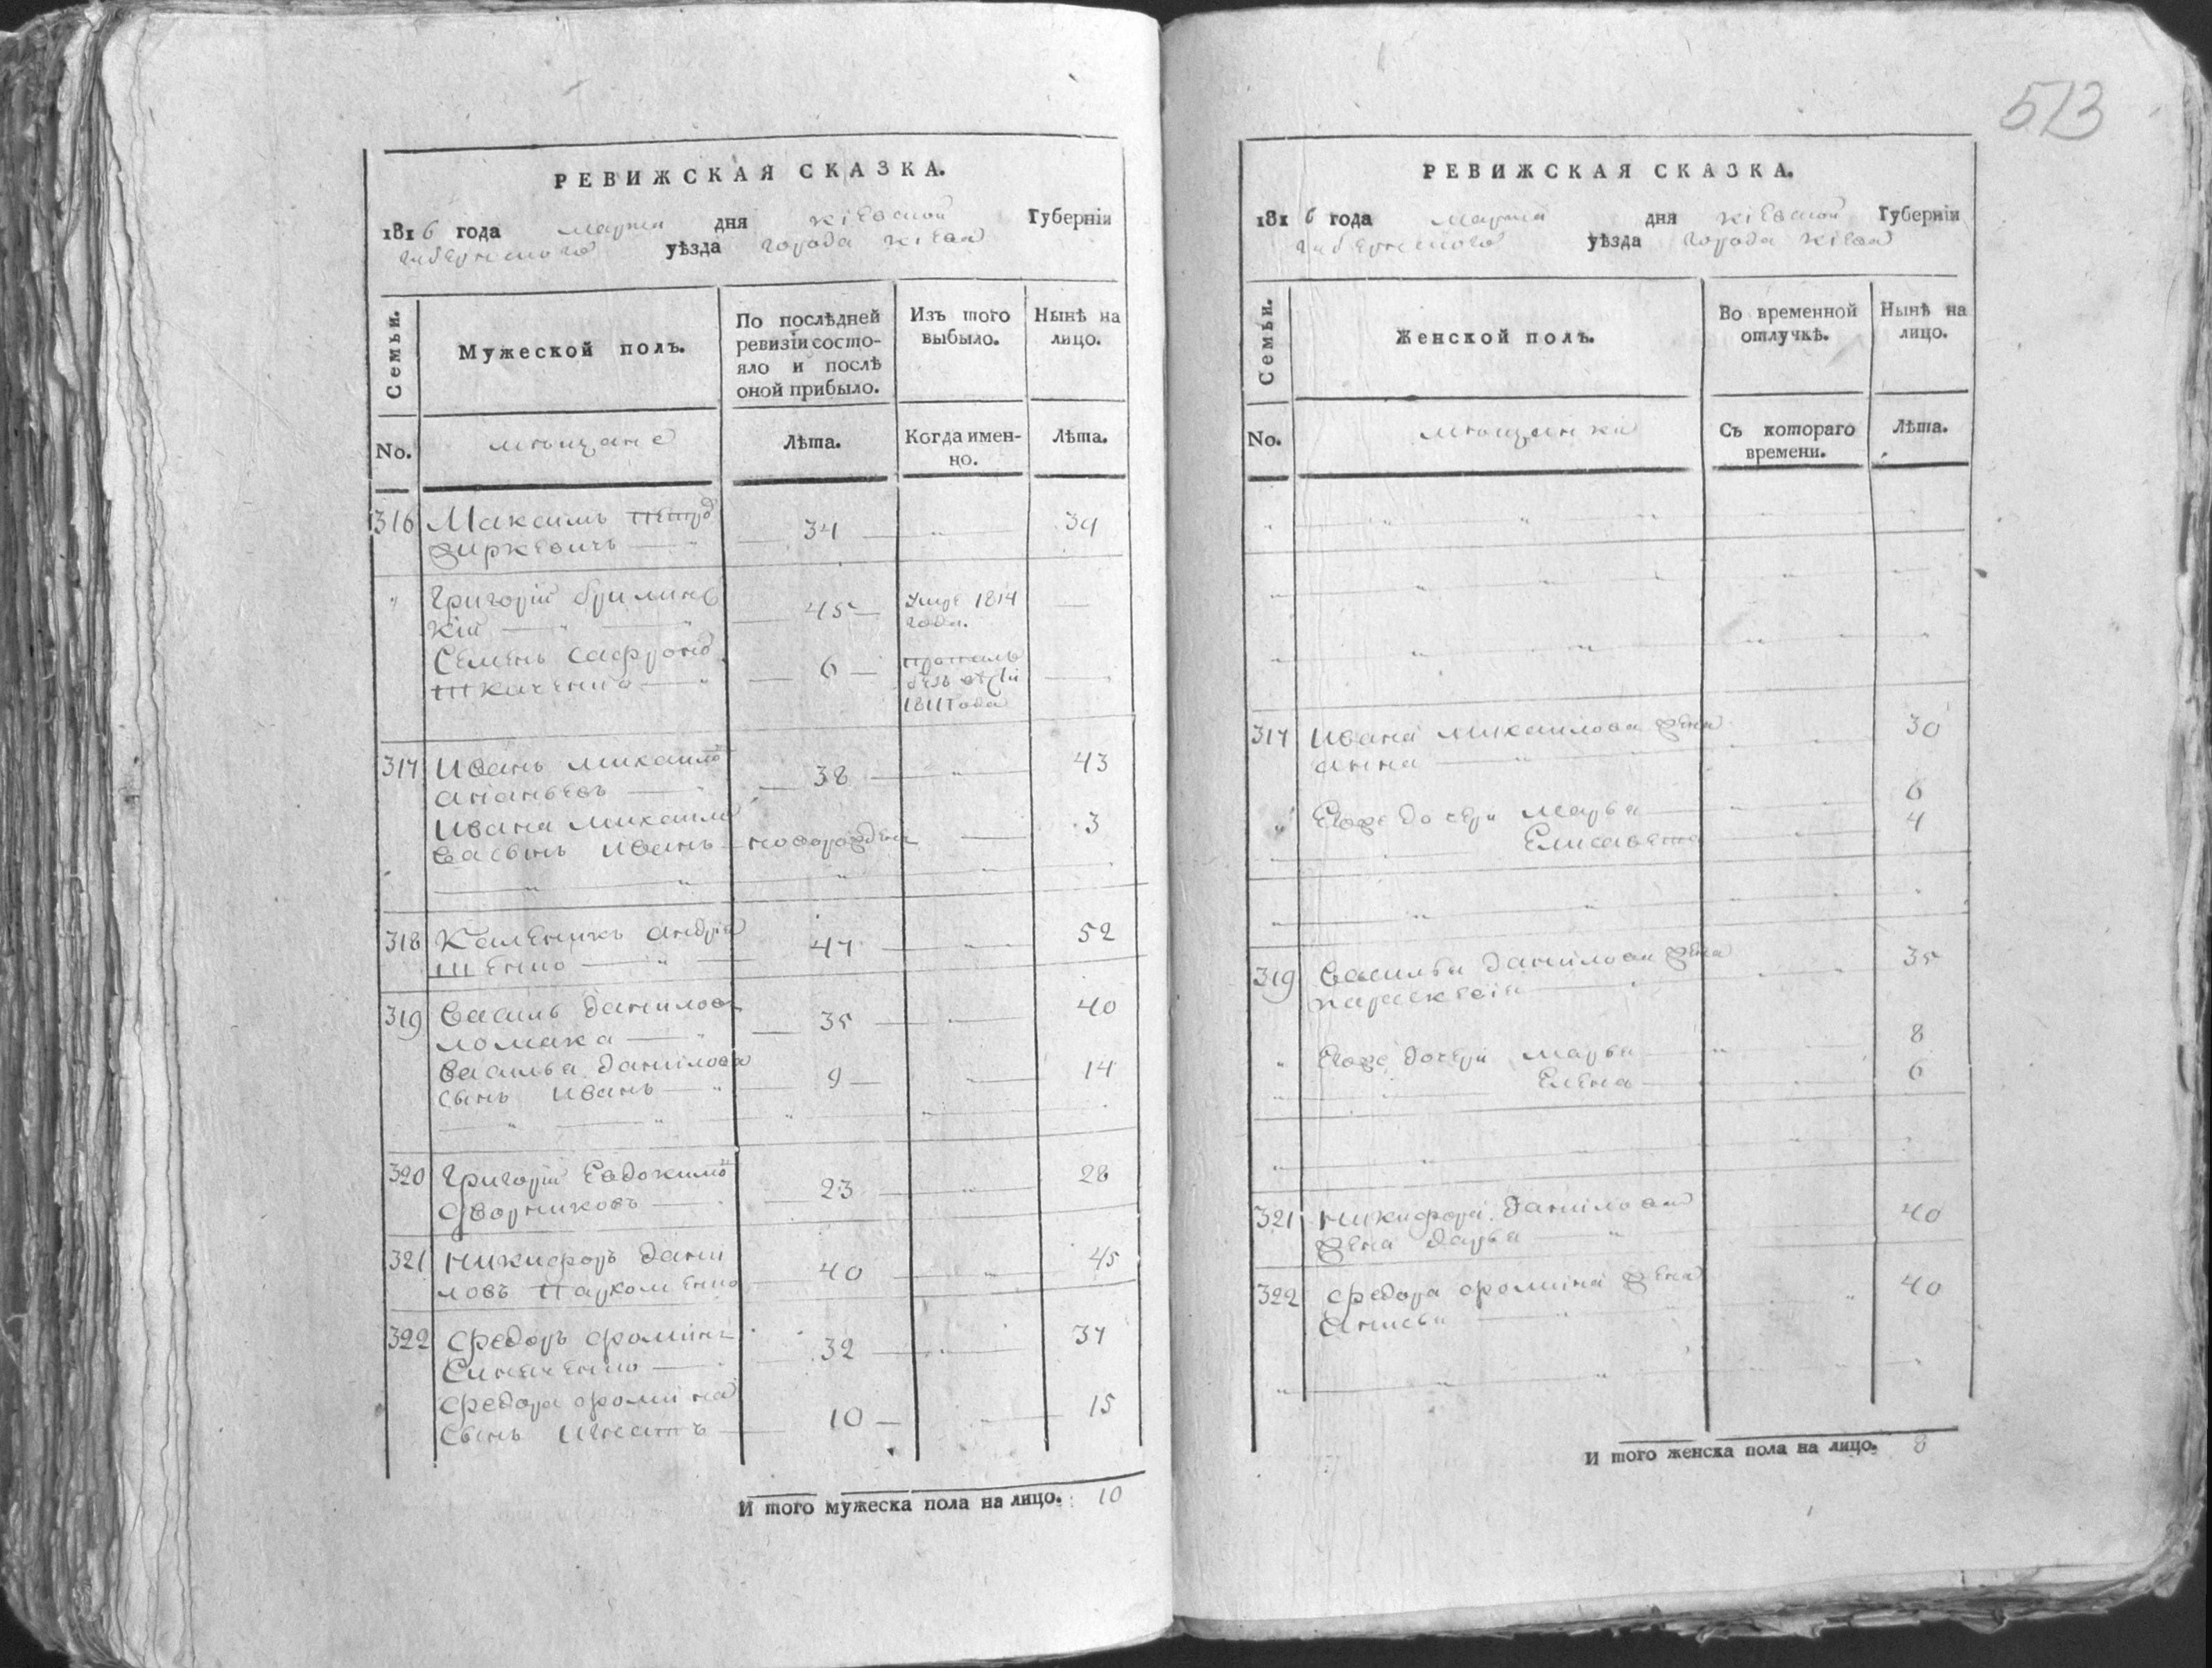 513
РЕВИЖСКАЯ СКАЗКА.
1816 года марта дня Кіевской Губерніи
Губернского уѣзда города Кіева
Семьи.
Мужеской полъ.
По послѣдней ревизіи состояло и послѣ оной прибыло.
Изъ того выбыло.
Нынѣ на лицо.
No.
мѣщане
Лѣта.
Когда именно.
Лѣта.
316 Максимъ Петро
34 34
Григорій
кій 45 1814
года.
Семенъ Сафроно
Ткаченко 6 пропалъ
безъ
1811 года
317 Иванъ Михаило
Ананьевъ 38 43
Ивана Михаило
ва сынъ Иванъ новорожден 3
318 Каленикъ Андріа
шенко 47 52
319 Василь Даниловъ
Ломака 35 40
Василья Данілова
сынъ Иванъ 9 14
320 Григорій Евдокимо
Дворниковъ 23 28
321 Никифоръ Дани
ловъ Пархоменко 40 45
322 Федоръ Фоминъ
Синяченко 32 37
Федора Фомина
сынъ Игнатъ 10 15
И того мужеска пола на лицо. 10
РЕВИЖСКАЯ СКАЗКА.
1816 года марта дня Кіевской Губерніи
Губернского уѣзда города Кіева
Семьи.
Женской полъ.
Во временной отлучкѣ.
Нынѣ на лицо.
No.
мѣщанки
Съ котораго времени.
Лѣта.
317 Ивана Михаилова жена
Анна 30
Егоже дочери Марья 6
Елисавета 4
319 Василья Данілова жена
Параскевія 35
Егоже дочери Марья 8
Елена 6
321 Никифора Данілова
жена Дарья 40
322 Федора Фомина жена
Анисья 40
И того женска пола на лицо. 8